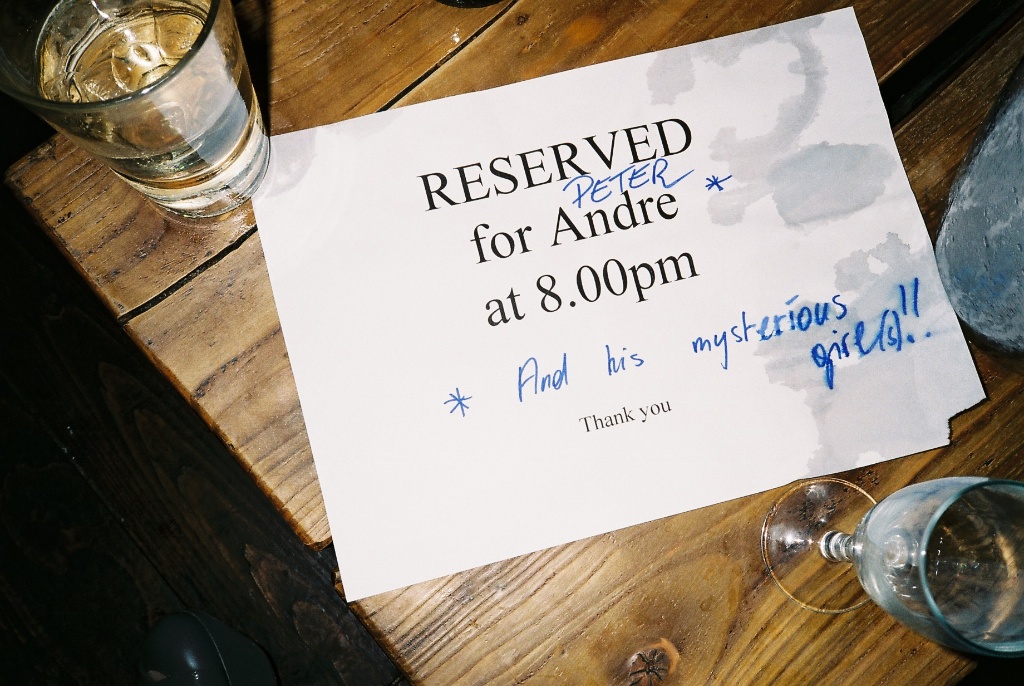 RESERVED
PETER *
for Andre
at 8.00pm
* And his mysterious
girl(s)!!
Thank you